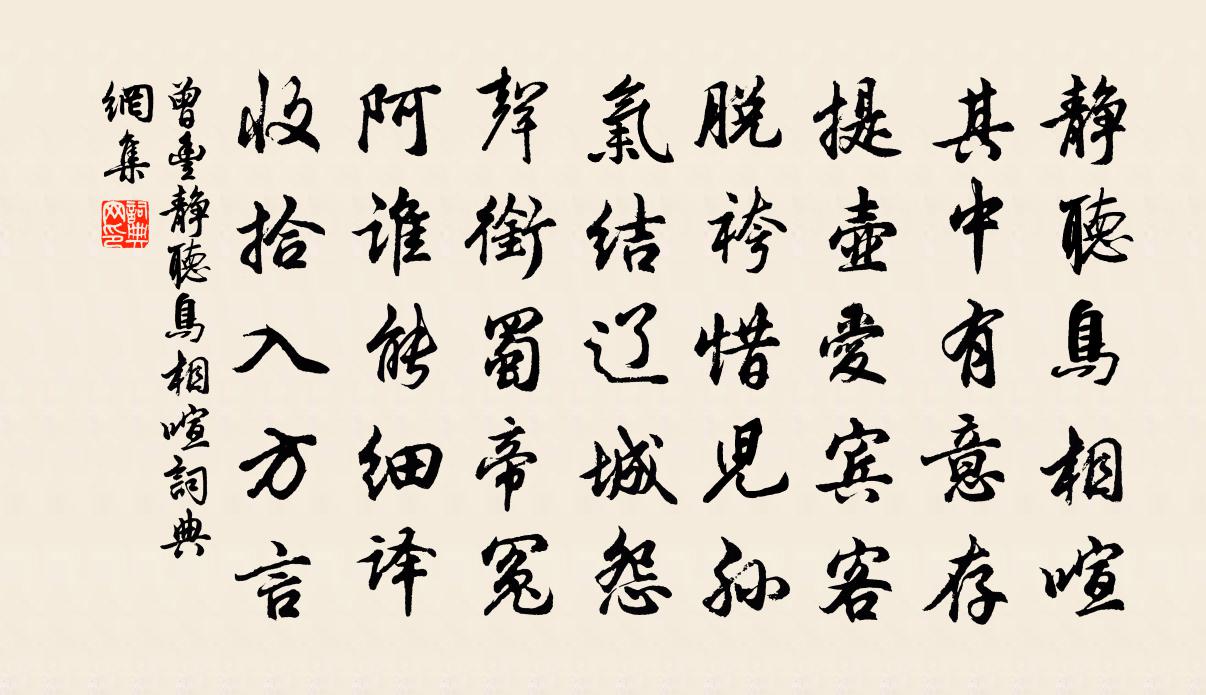 静聽鳥相喧
其中有意存
提壺愛宾客
脱袴惜児孙
氣结辽城怨
聲銜蜀帝冤
阿谁能细译
收拾入方言
曾豊静聽鳥相喧詞典
網集
詞典網印